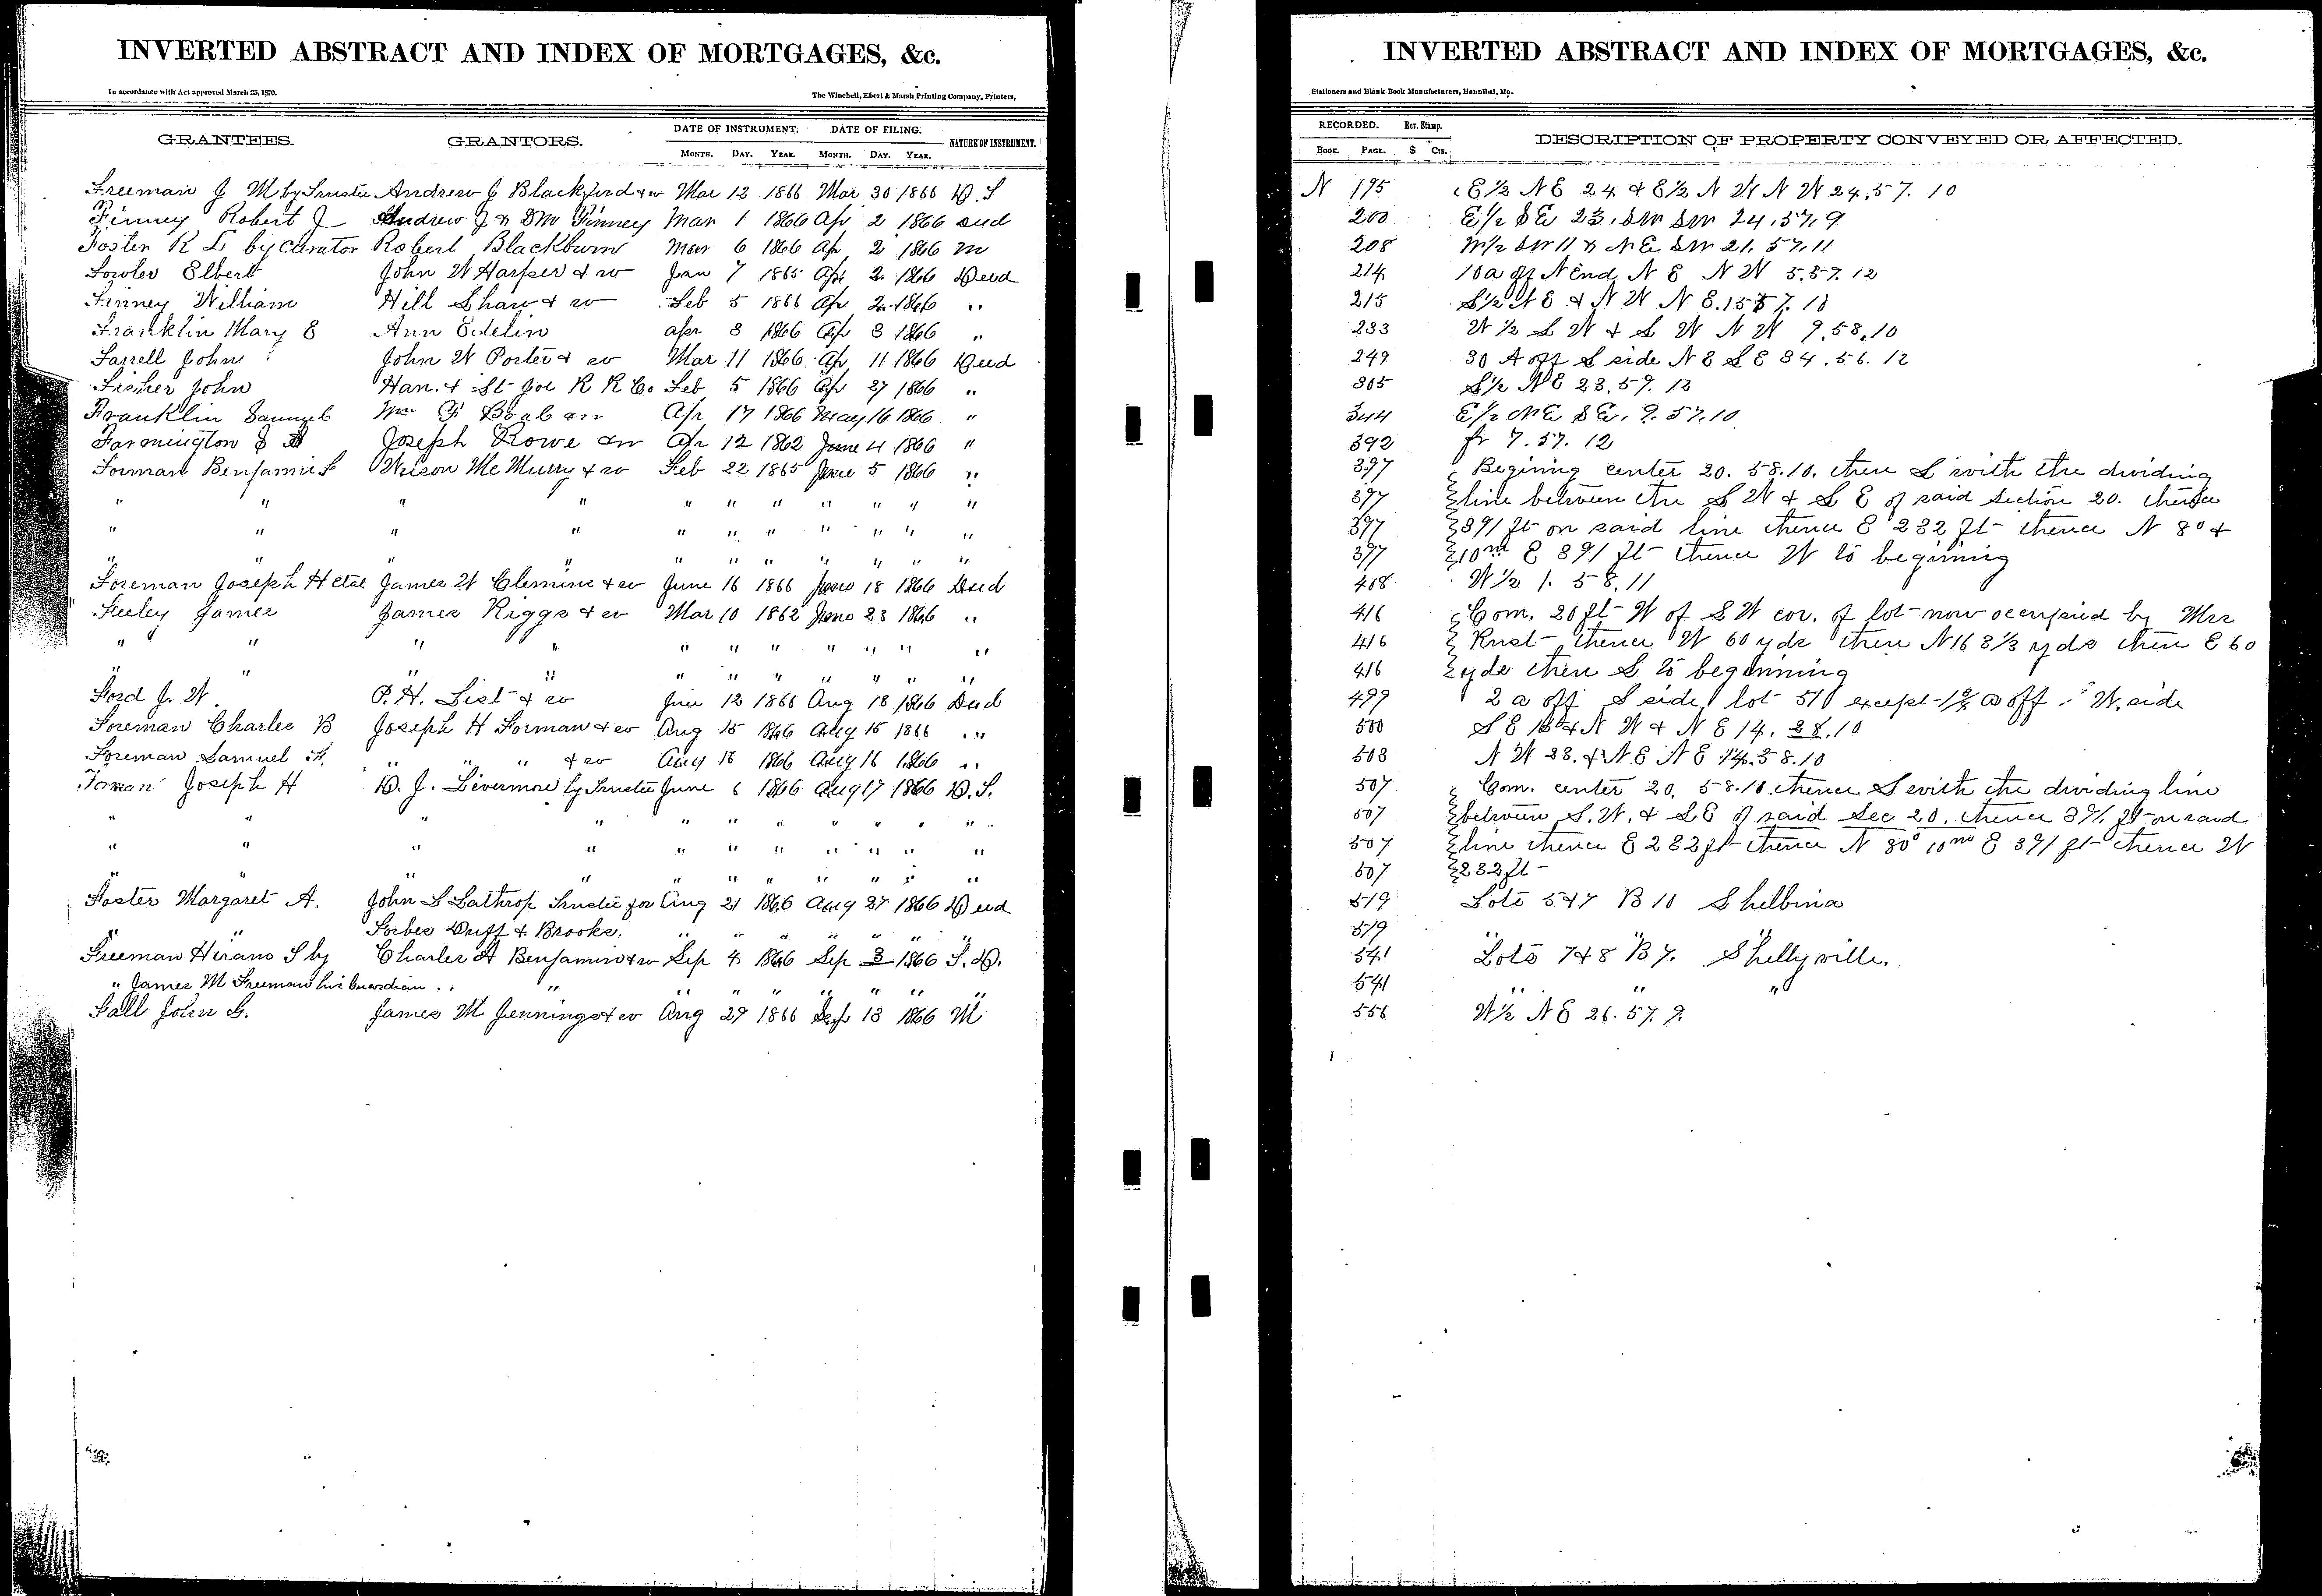 INVERTED ABSTRACT AND INDEX OF MORTGAGES, &c.
In accordance with Act approved March 25, 1870.
The Winchell, Ebert & Marsh Printing Company, Printers,
GRANTEES. GRANTORS. DATE OF INSTRUMENT. DATE OF FILING. NATURE OF INSTRUMENT.
MONTH. DAY. YEAR. MONTH. DAY. YEAR.
Freeman J M by Trustee Andrew J Blackford & w Mar 12 1866 Mar 30 1866 D. T
Finney Robert J Andrew J & DM Finney Mar 1 1866 Apr 2 1866 Deed
Foster R L by Curator Robert Blackburn Mar 6 1866 Ap 2 1866 M
Fowler Elbert John W Harper & w Jan 7 1865 Apr 2 1866 Deed
Finney William Hill Shaw & w Feb 5 1866 Ap 2 1866 "
Franklin Mary E Ann Edelin apr 3 1866 Ap 3 1866 "
Farrell John John W Porter & w Mar 11 1866 Ap 11 1866 Deed
Fischer John Han. & St Joe R R Co Feb 5 1866 Ap 27 1866 "
Franklin Samuel Wm Apr 17 1866 May 16 1866 "
Farmington E Joseph Rowe Apr 12 1862 June 4 1866 "
Forman Benjamin F Nelson McMurry & w Feb 22 1865 June 5 1866 "
" " " " " " " " " " "
" " " " " " " " " " "
" " " " " " " " " " "
Foreman Joseph H etal James W Clemine & w June 16 1866 June 18 1866 Deed
Feeley James James Riggs & w Mar 10 1862 June 23 1866 "
" " " " " " " " " " "
" " " " " " " " " " "
Ford J. W. P. H. List & w June 12 1866 Aug 18 1866 Deed
Foreman Charles B Joseph H Forman & w Aug 15 1866 Aug 15 1866 "
Foreman Samuel H. " " " & w Aug 16 1866 Aug 16 1866 "
Forman Joseph H D. J. Livermore by Trustee June 6 1866 Aug 17 1866 D. T.
" " " " " " " " " " "
" " " " " " " " " " "
" " " " " " " " " " "
Foster Margaret A. John L Lathrop Trustee for Aug 21 1866 Aug 27 1866 Deed
" " Forbes Duff & Brooks. " " " " " " "
Freeman Hiram S by Charles A Benjamin & w Sep 4 1866 Sep 3 1866 T. D.
" James M Freeman his Guardian " " " " " " " " "
Fall John G. James M Jennings & w Aug 29 1866 Sep 13 1866 M
INVERTED ABSTRACT AND INDEX OF MORTGAGES, &c.
Stationers and Blank Book Manufacturers, Hannibal, Mo.
RECORDED. Rev. Stamp. DESCRIPTION OF PROPERTY CONVEYED OR AFFECTED.
BOOK. PAGE. $ CTS.
N 195 E½ NE 24 & E½ N W N W 24, 57. 10
200 E½ SE 23, SW SW 24, 57, 9
208 W½ SW 11 & NE SW 21. 57. 11
214 10 a off N End N E N W 5. 57. 12
215 S½ NE & N W N E. 15 57. 10
233 W ½ S W & S W N W 9, 58, 10
249 30 A off S side N E S E 34. 56. 12
305 S½ NE 23. 57. 12
344 E½ NE SE. 9. 57. 10
392 fr 7. 57. 12
397 Begining center 20. 58. 10. then S with the dividing
397 line between the S W & S E of said Section 20. thence
397 391 ft on said line thence E 232 ft thence N 80 &
397 10m E 391 ft thence W to begining
408 W½ 1. 58. 11
416 Com. 20 ft W of S W cor. of lot now occupied by Mrs
416 Rust thence W 60 yds then N 16 3⅓ yds then E 60
416 yds then S to beginning
499 2 a off S side lot 510 except off W. side
500 S E & N W & N E 14. 58. 10
503 N W 23. & N E N E 14. 58. 10
507 Com. center 20, 58. 10. thence S with the dividing line
507 between S. W. & S E of said Sec 20. thence 391 ft on said
507 line thence E 232 ft thence N 80° 10m E 391 ft thence W
507 232 ft
519 Lots 5 & 7 B 10 Shelbina
519 " " "
541 Lots 7 & 8 B 7. Shelbyville.
541 " " "
556 W½ N E 26. 57. 9.